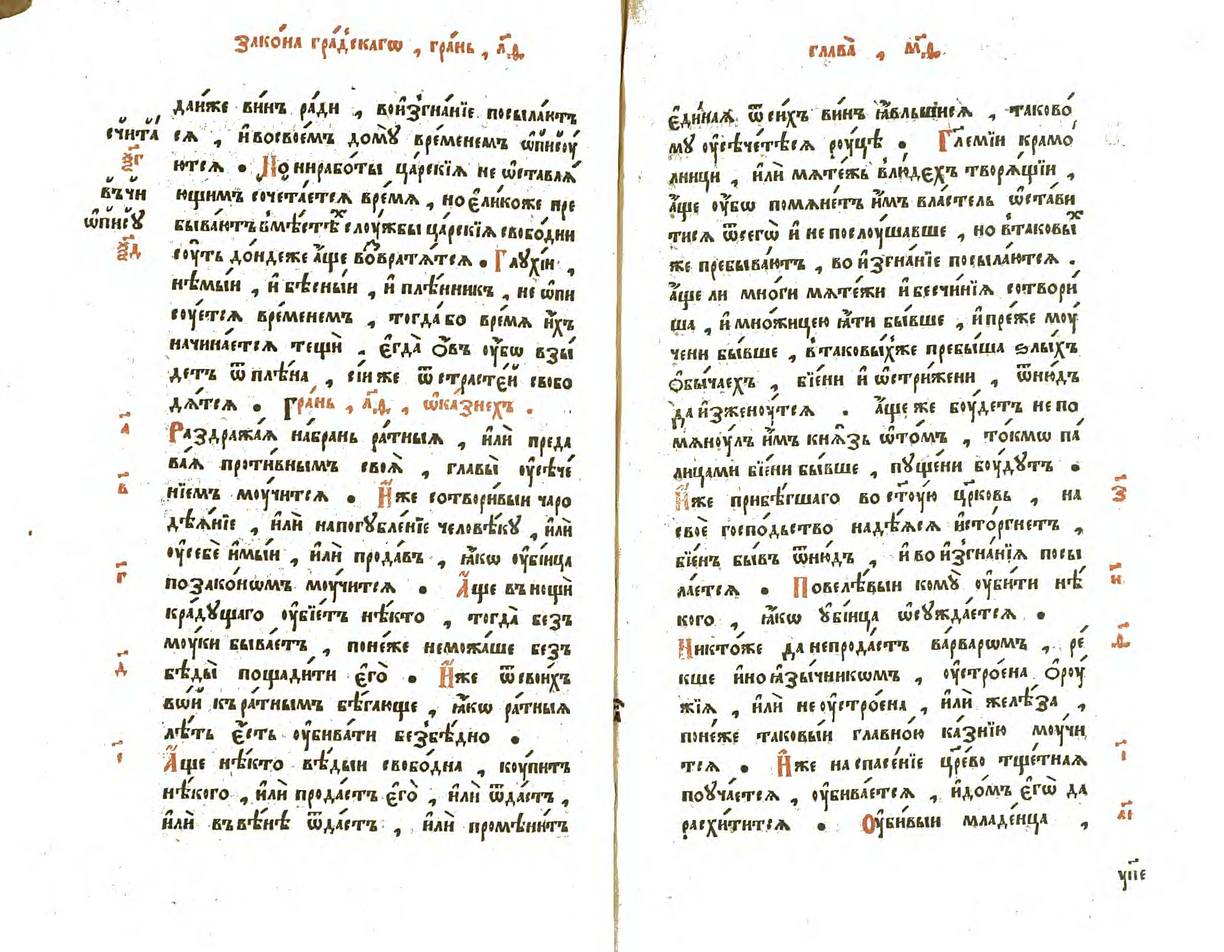 Зако́на гра́дскагѡ , гра́нь , л҃ѳ.
да́нже ви́нъ ра́ди , воизгна́нїе посыла́ютъ
ся , и҆ во свое́мъ дому̀ вре́менемъ ѡ҆писоу́
ются . Но ни рабо́ты ца́рскїя не ѡ҆ставля́
ющимъ сочета́ется вре́мя , но є҆ли́коже пре
быва́ютъ в мѣ́стѣх слоу́жбы ца́рскїя свобо́дни
соу́ть до́ндеже а҆́ще возвратя́тся . Глухі́и ,
нѣмы́и , и҆ бѣ́сныи , и҆ плѣ́нникъ , не ѡ҆пи
соу́ется вре́менемъ , тогда́ бо вре́мя и҆́хъ
начина́ется тещѝ , є҆гда̀ ѻ҆́въ оу҆́бѡ взы́
детъ ѿ плѣ́на , сі́и же ѿ страсте́й свобо
дя́тся . Гра́нь , л҃ѳ , ѡ҆ ка́знехъ .
Раздража́я на́ брань ра́тныя , и҆лѝ преда
вая проти́внымъ своя̀ , главы̀ оу҆сѣче́
нїемъ моу́чится . И҆́же сотвори́выи чаро
дѣя́нїе , и҆лѝ на погубле́нїе человѣ́ку , и҆лѝ
оу҆ себѐ и҆мы́и , и҆лѝ прода́въ , ꙗ҆́кѡ оу҆бі́ица
по зако́нѡмъ моу́чится . А҆́ще в нощѝ
краду́щаго оу҆бїе́тъ нѣ́кто , тогда̀ безъ
моу́ки быва́етъ , поне́же не можа́ше безъ
бѣды̀ пощади́ти є҆го̀ . И҆́же ѿ свои́хъ
во́и къ ра́тнымъ бѣ́гающе , ꙗ҆́кѡ ра́тныя
лѣ́ть є҆́сть оу҆бива́ти безбѣ́дно .
А҆́ще нѣ́кто вѣ́дыи свобо́дна , коу́питъ
нѣ́кого , и҆лѝ прода́стъ є҆го̀ , и҆лѝ ѿда́стъ ,
и҆лѝ въ вѣ́нѣ ѿда́стъ , и҆лѝ промѣни́тъ
счита́
ѯ҃г
въ чи
ѡ҆писоу
ѯ҃д
а҃
в҃
г҃
д҃
є҃
глава̀ , м҃ѳ.
є҆ди́ная ѿ си́хъ ви́нъ ꙗ҆́вльшїися , таково́
му оу҆сѣче́тся роуцѣ̀ . Гле́мїи крамо́
лници , и҆лѝ мяте́жь в лю́дехъ творя́щїи ,
а҆́ще оу҆́бѡ помяне́тъ и҆́мъ вла́стель ѡ҆ста́ви
тися ѿ сегѡ̀ и҆ не послоу́шавше , но в таковы́х
же пребыва́ютъ , во и҆згна́нїе посыла́ются .
а҆́ще ли мно́ги мяте́жи и҆ бесчи́нїя сотвори́
ша , и҆ мно́жицею ꙗ҆́ти бы́вше , и҆ пре́же моу́
чени бы́вше , в таковы́хже пребы́ша ѕлы́хъ
ѻ҆бы́чаехъ , бїе́ни и҆ ѡ҆стри́жени , ѿню́дъ
да и҆зжену́тся . А҆́ще же боу́детъ не по
мяноу́лъ и҆́мъ кня́зь ѡ҆ то́мъ , то́кмѡ па́
лицами бїе́ни бы́вше , пу́щени боу́дутъ .
И҆́же прибѣ́гшаго во ст҃оу́ю цр҃ковь , на
своѐ госпо́дьство надѣ́яся и҆сто́ргнетъ ,
бїе́нъ бы́въ ѿню́дъ , и҆ во и҆згна́нїя посы
ла́ется . Повелѣ́выи кому̀ оу҆би́ти нѣ́
кого , ꙗ҆́кѡ у҆бі́ица ѡ҆сужда́ется .
Никто́же да не прода́стъ ва́рварѡмъ , ре́
кше и҆ноꙗзы́чникѡмъ , оу҆стро́ена ѻ҆роу́
жїя , и҆лѝ не оу҆стро́ена , и҆лѝ желѣ́за ,
поне́же таковы́и гла́вною ка́знїю моу́чи
тся . И҆́же на спасе́нїе цр҃ево тще́тная
поуча́ется , оу҆бива́ется , и҆ до́мъ є҆гѡ̀ да
расхи́тится . Оу҆би́выи младе́нца ,
з҃
и҃
ѳ҃
і҃
а҃і